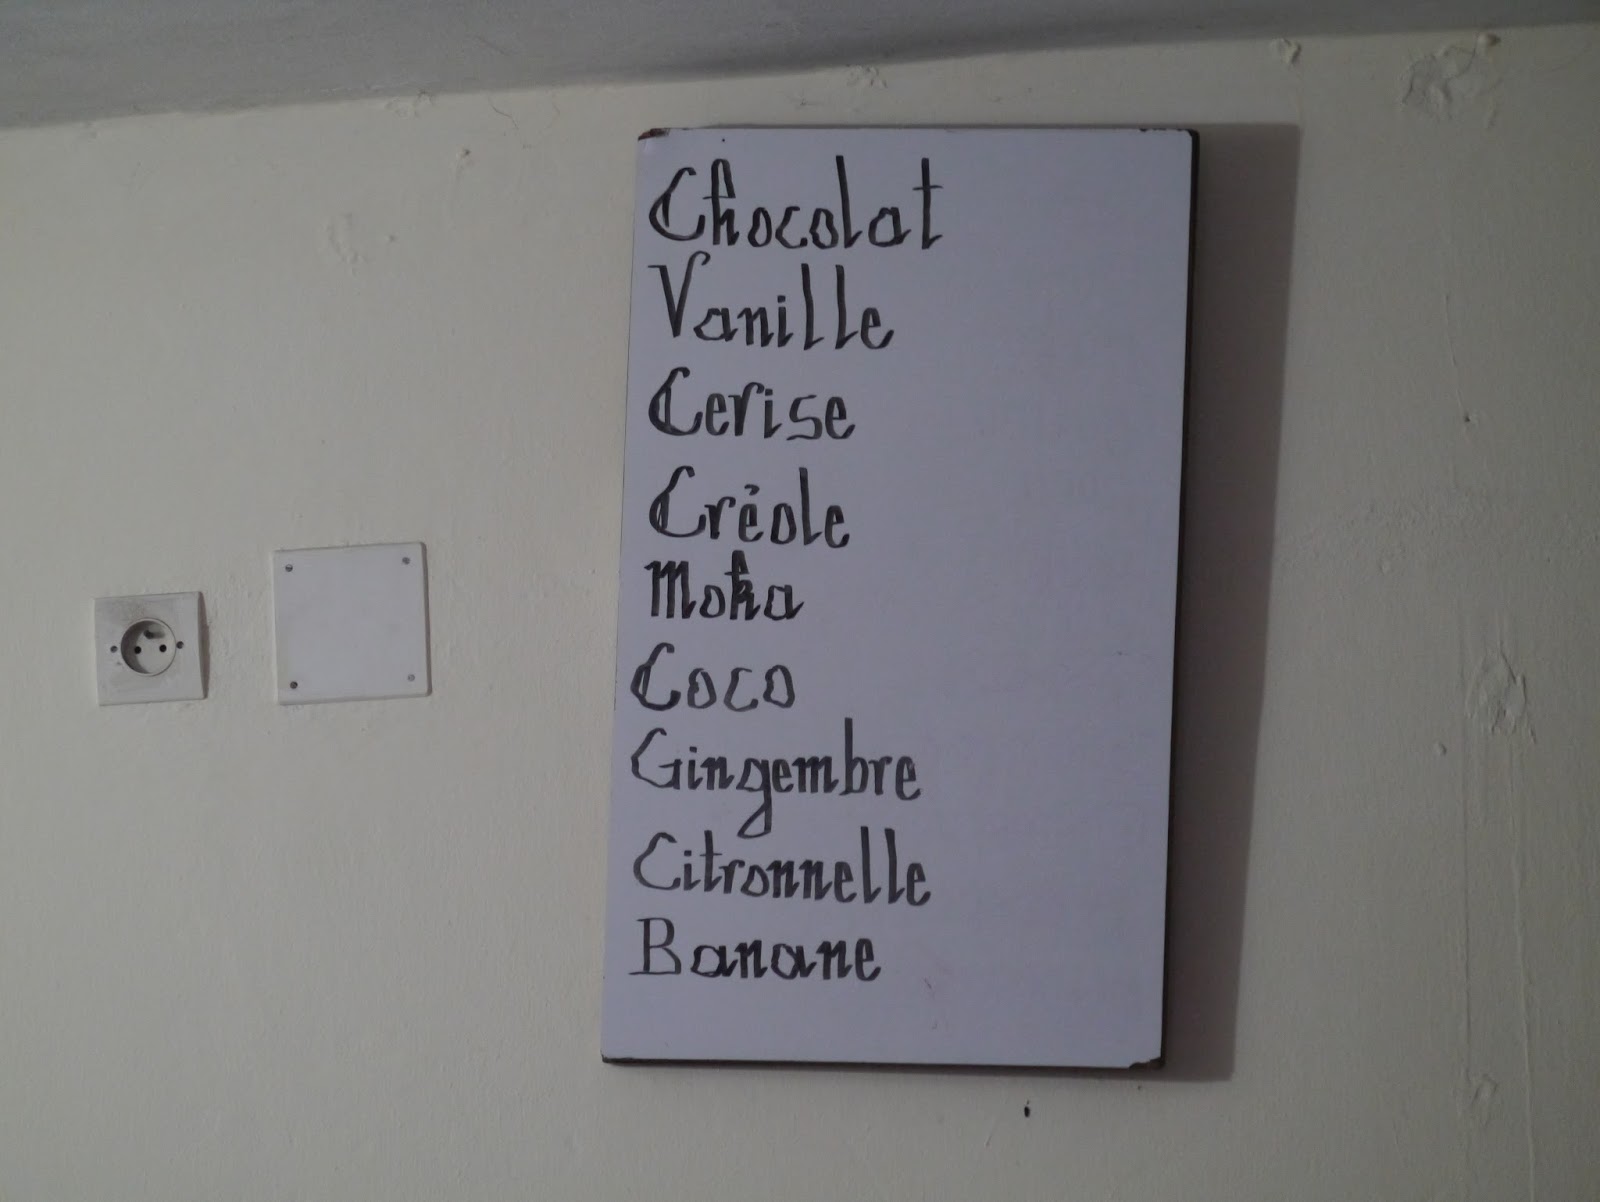 Chocolat
Vanille
Cerise
Créole
Moka
Coco
Gingembre
Citronnelle
Banane